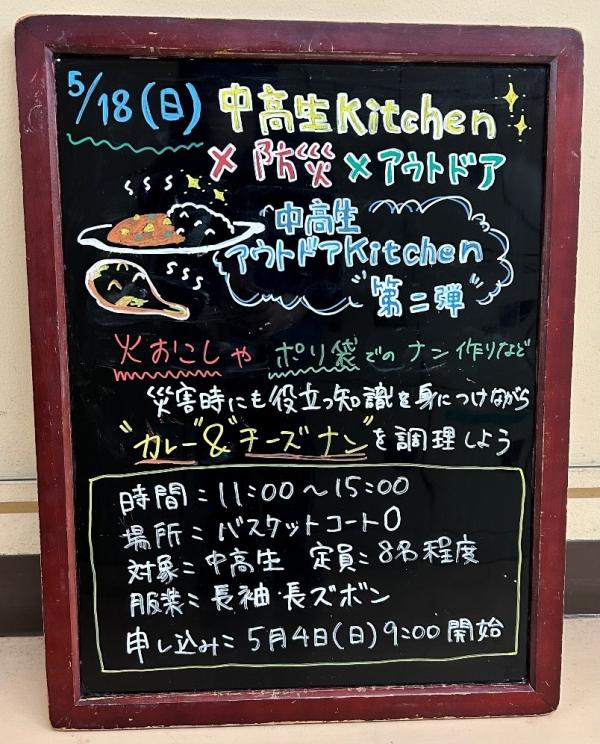 5/18(日) 中高生Kitchen
×防災×アウトドア
中高生
アウトドアKitchen
"第二弾"
火おこしや ポリ袋でのナン作りなど
災害時にも役立つ知識を身につけながら
"カレー"&"チーズナン"を調理しよう
時間:11:00~15:00
場所:バスケットコート0
対象:中高生 定員:8名程度
服業:長袖・長ズボン
申し込み:5月4日(日)9:00開始